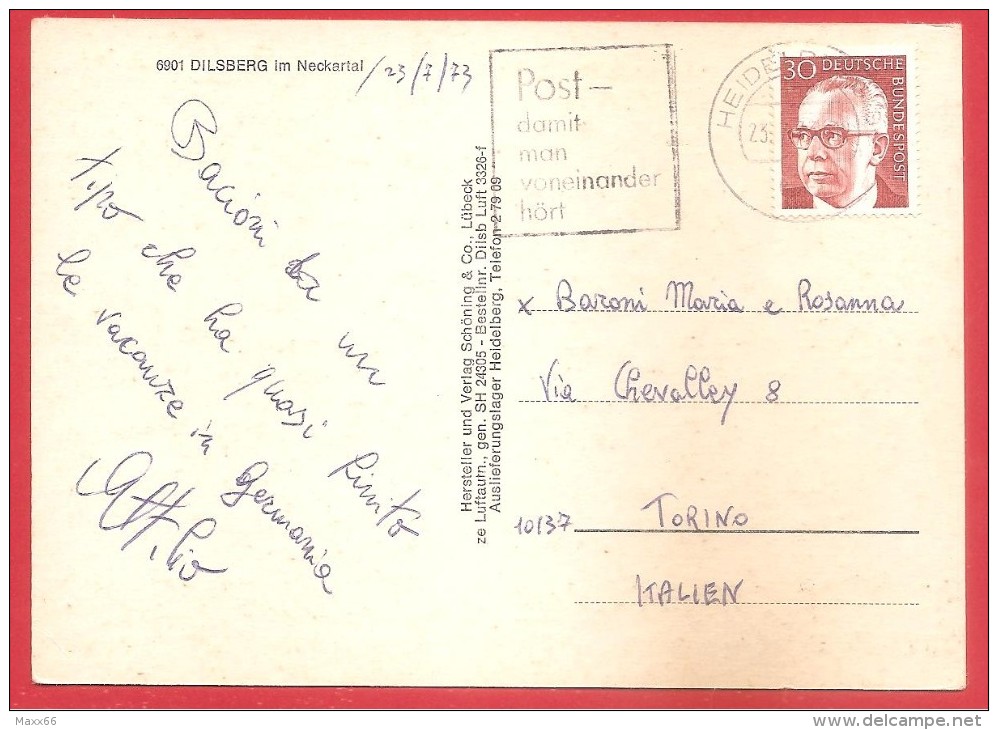 6901 DILSBERG im Neckartal / 23/7/73
Bacioni da un
tipo che ha quasi finito
le vacanze in Germania
Attilio
Hersteller und Verlag Schöning & Co., Lübeck
ze Luftaufn., gen. SH 24305 - Bestellnr. Dilsb Luft 3326-f
Auslieferungslager Heidelberg, Telefon 2 79 09
Post –
damit
man
voneinander
hört
23.
30 DEUTSCHE
BUNDESPOST
x Baroni Maria e Rosanna
Via Chevalley 8
10137 TORINO
ITALIEN
Maxx66
www.delcampe.net